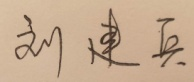 刘建兵